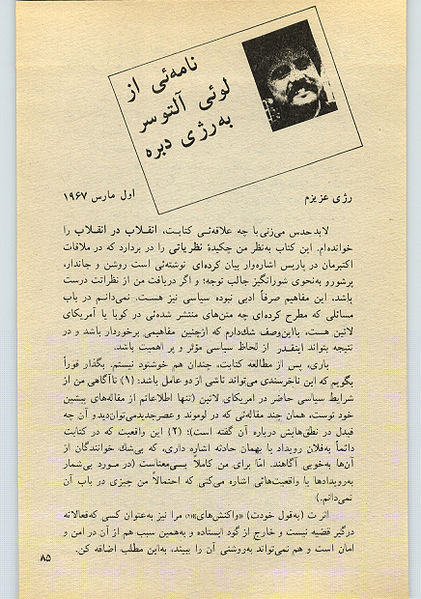 نامه‌ئی از
لوئی آلتوسر
به‌رژی دبره
رژی عزیزم
اول مارس ۱۹۶۷
لابد حدس می‌زنی با چه علاقه‌ئی کتابت، انقلاب در انقلاب را
خوانده‌ام. این کتاب به‌نظر من چکیدهٔ نظریاتی را در بردارد که در ملاقات
اکتبرمان در پاریس اشاره‌وار بیان کرده‌ای نوشته‌ئی است روشن و جاندار،
پرشور و به‌نحوی شورانگیز جالب توجه؛ و اگر دریافت من از نظراتت درست
باشد، این مفاهیم صرفاً ادبی نبوده سیاسی نیز هست. نمی‌دانم در باب
مسائلی که مطرح کرده‌ای چه متن‌های منتشر شده‌ئی در کوبا یا آمریکای
لاتین هست، بااین‌وصف شک‌دارم که ازچنین مفاهیمی برخوردار باشد و در
نتیجه بتواند اینقدر از لحاظ سیاسی مؤثر و پر اهمیت باشد.
باری، پس از مطالعه کتابت، چندان هم خوشنود نیستم. بگذار فوراً
بگویم که این ناخرسندی می‌تواند ناشی از دو عامل باشد: (۱) ناآگاهی من از
شرایط سیاسی حاضر در امریکای لاتین (تنها اطلاعاتم از مقاله‌های پیشین
خود توست، همان چند مقاله‌ئی که در لوموند و عصرجدیدمی‌توان‌دید و آن چه
فیدل در نطق‌هایش درباره آن گفته است)؛ (۲) این واقعیت که در کتابت
دائماً به‌فلان رویداد یا بهمان حادثه اشاره داری، که بی‌شك خوانندگان از
آن‌ها به‌خوبی آگاهند. امّا برای من کاملاً بی‌معناست (در مورد بی‌شمار
به‌رویدادها یا واقعیت‌هائی اشاره می‌کنی که احتمالا من چیزی در باب آن
نمی‌دانم.)
اثر ت (به‌قول خودت) «واکنش‌های» مرا نیز به‌عنوان کسی که‌فعالانه
درگیر قضیه نیست و خارج از گود ایستاده و به‌همین سبب هم از آن در امن و
امان است و هم نمی‌تواند به‌روشنی آن را ببیند، به‌این مطلب اضافه کن.
۸۵